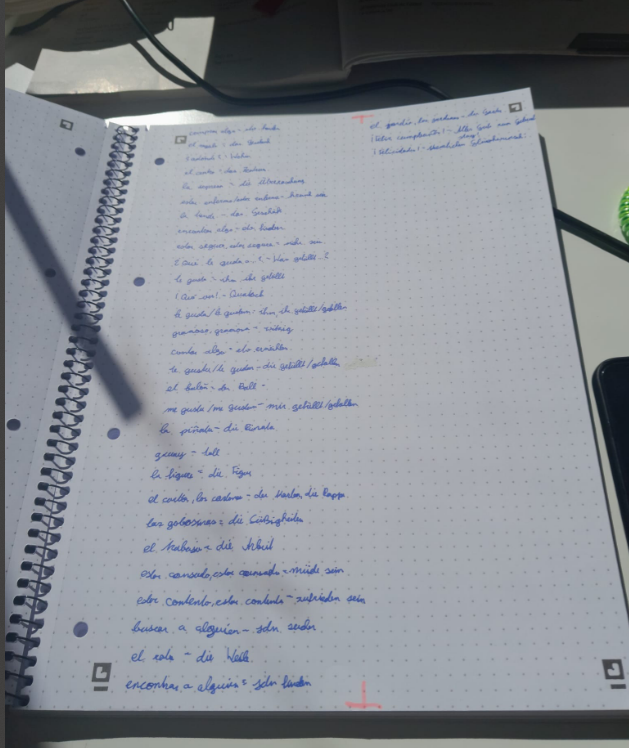 algo - etw.
el
el
la
estar enfermo/estar enferma - krank sein
la tarde - der
encontrar algo - etw. finden
estar seguro, estar segura - sicher sein
¿Qué le gusta a...? - Was gefällt...?
le gusta - ihm, ihr gefällt
¡Qué va! - Quatsch
le gusta/le gustan: ihm, ihr gefällt/gefallen
gracioso, graciosa - witzig
contar algo - etw. erzählen
te gusta/te gustan - dir gefällt/gefallen
el balón - der Ball
me gusta/me gustan - mir gefällt/gefallen
la piñata - die Pinata
guay - toll
la figura - die Figur
el cartón, los cartones - der Karton, die Pappe
las golosinas = die Süßigkeiten
el trabajo = die Arbeit
estar cansado, estar cansada = müde sein
estar contento, estar contenta - zufrieden sein
buscar a alguien - jdn. suchen
el rato - die Weile
encontrar a alguien = jdn finden
el jardín, los jardines - der Garten
¡Feliz cumpleaños! - Alles Gute zum Geburtstag!
¡Felicidades! - Herzlichen Glückwunsch!